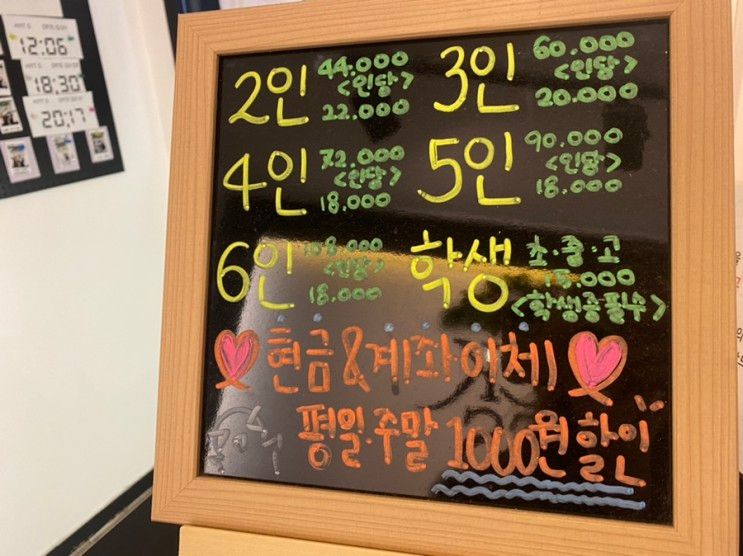 12:06
18:30
20:17
2인 44.000
<인당>
22.000
3인 60.000
<인당>
20.000
4인 72.000
<인당>
18.000
5인 90.000
<인당>
18.000
6인 108.000
<인당>
18.000
학생 초·중·고
15.000
<학생증필수>
현금&계좌이체
평일.주말 1000원 할인